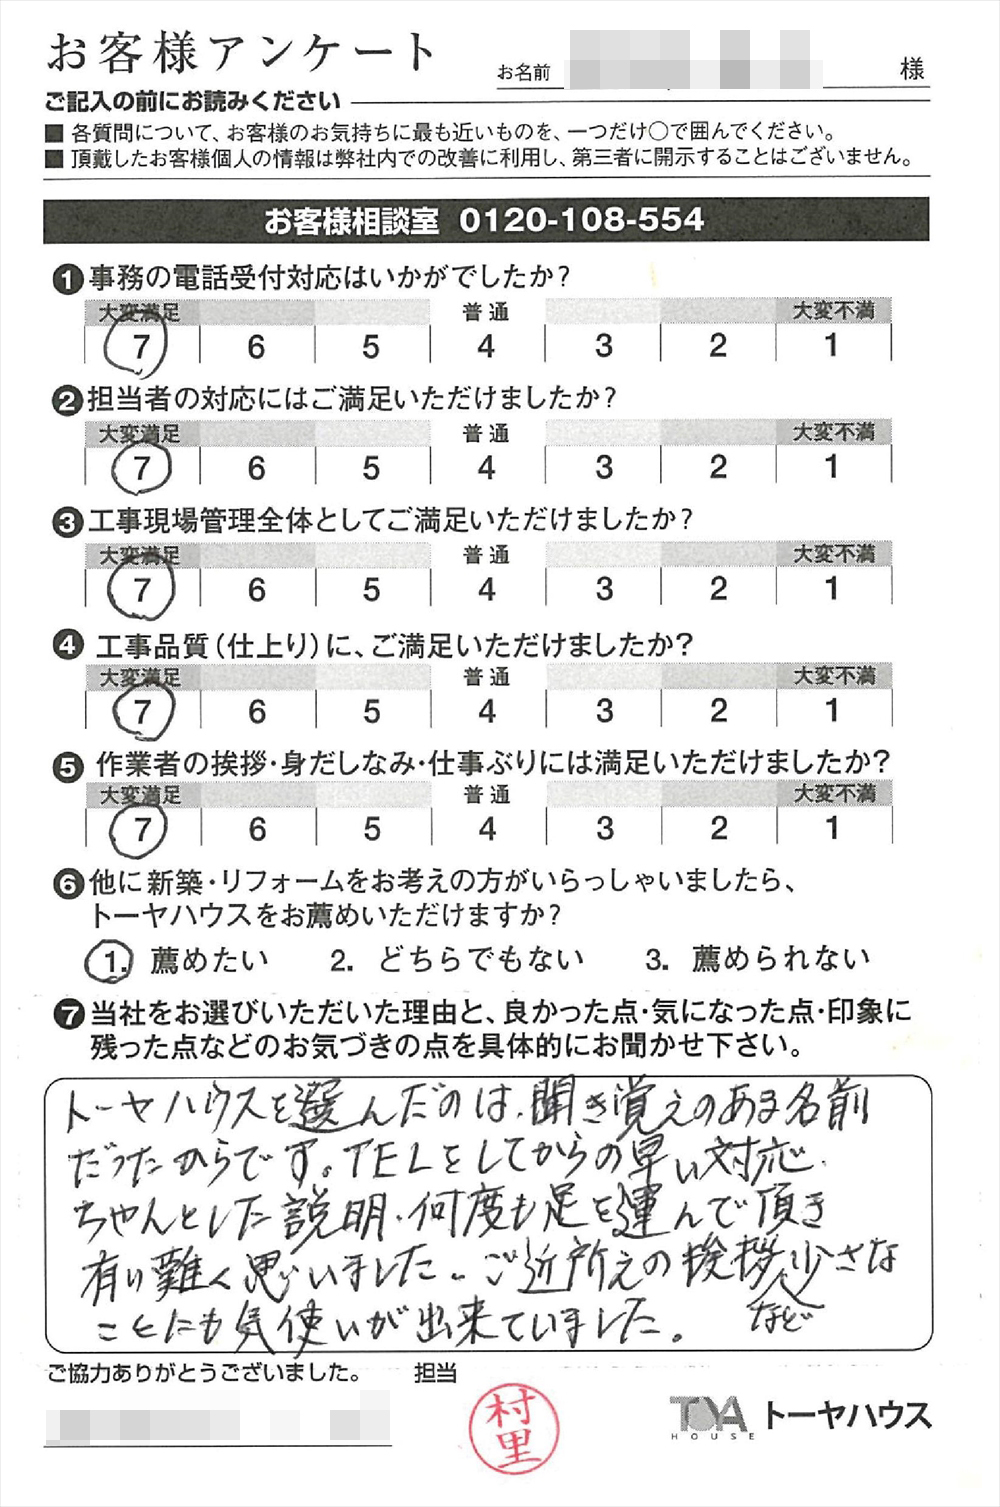 お客様アンケート
お名前 様
ご記入の前にお読みください
■ 各質問について、お客様のお気持ちに最も近いものを、一つだけ○で囲んでください。
■ 頂戴したお客様個人の情報は弊社内での改善に利用し、第三者に開示することはございません。
お客様相談室 0120-108-554
❶事務の電話受付対応はいかがでしたか?
大変満足 普通 大変不満
7 6 5 4 3 2 1
❷担当者の対応にはご満足いただけましたか?
大変満足 普通 大変不満
7 6 5 4 3 2 1
❸工事現場管理全体としてご満足いただけましたか?
大変満足 普通 大変不満
7 6 5 4 3 2 1
❹工事品質(仕上り)に、ご満足いただけましたか?
大変満足 普通 大変不満
7 6 5 4 3 2 1
❺作業者の挨拶・身だしなみ・仕事ぶりには満足いただけましたか?
大変満足 普通 大変不満
7 6 5 4 3 2 1
❻他に新築・リフォームをお考えの方がいらっしゃいましたら、
トーヤハウスをお薦めいただけますか?
1. 薦めたい 2. どちらでもない 3. 薦められない
❼当社をお選びいただいた理由と、良かった点・気になった点・印象に
残った点などのお気づきの点を具体的にお聞かせ下さい。
トーヤハウスを選んだのは、聞き覚えのある名前
だったからです。TELをしてからの早い対応、
ちゃんとした説明、何度も足を運んで頂き
有り難く思いました。ご近所えの挨拶など少さな
ことにも気使いが出来ていました。
ご協力ありがとうございました。 担当
村里
TOYA HOUSE トーヤハウス